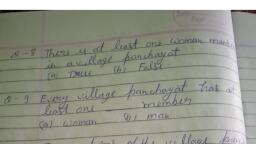 Q-8 There is at least one woman member
in a village panchayat
(a) True (b) False
Q-9 Every village panchayat has at
least one ______ member
(a) woman (b) man
of the village